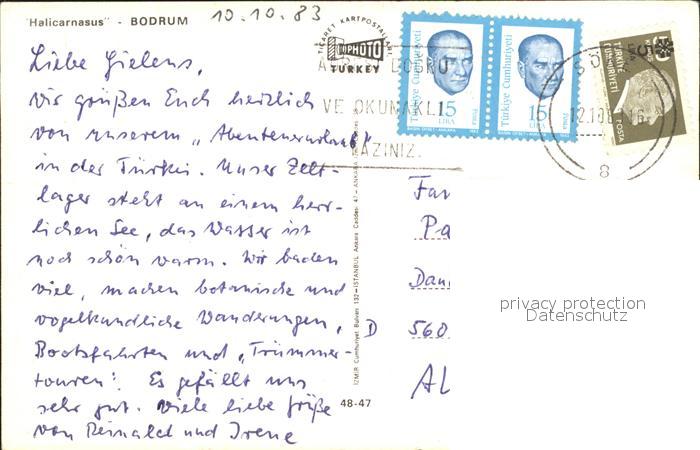 "Halicarnasus" - BODRUM
10.10.83
Liebe Gielens,
wir grüßen Euch herzlich
von unserem „Abenteuerurlaub"
in der Türkei. Unser Zelt-
lager steht an einem herr-
lichen See, das Wasser ist
noch schön warm. Wir baden
viel, machen botanische und
vogelkundliche Wanderungen,
Bootsfahrten und „Trümmer-
touren". Es gefällt uns
sehr gut. Viele liebe Grüße
von Reinald und Irene
TICARET KARTPOSTALLARI
PHOTO
TURKEY
DOĞRU
VE OKUNAKLI
YAZINIZ.
Türkiye Cumhuriyeti
15
LİRA
Posta
Türkiye Cumhuriyeti
15
LİRA
Posta
TÜRKİYE
CUMHURİYETİ
POSTA
12.10.
8
İZMİR Cumhuriyet Bulvarı 132-İSTANBUL Ankara Caddesi 47-ANKARA
48-47
Fa
Pa
D 560
AL
privacy protection
Datenschutz